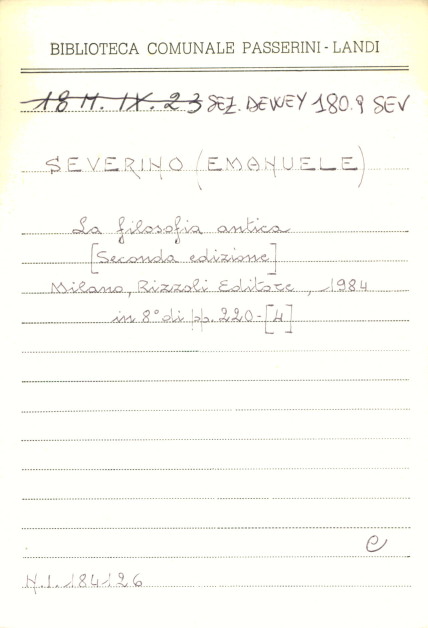 BIBLIOTECA COMUNALE PASSERINI-LANDI
18 M. IX. 23 SEZ. DEWEY 180.9 SEV
SEVERINO (EMANUELE)
La filosofia antica
[Seconda edizione]
Milano, Rizzoli Editore, 1984
in 8° di pp. 220-[4]
e
N.I. 184126